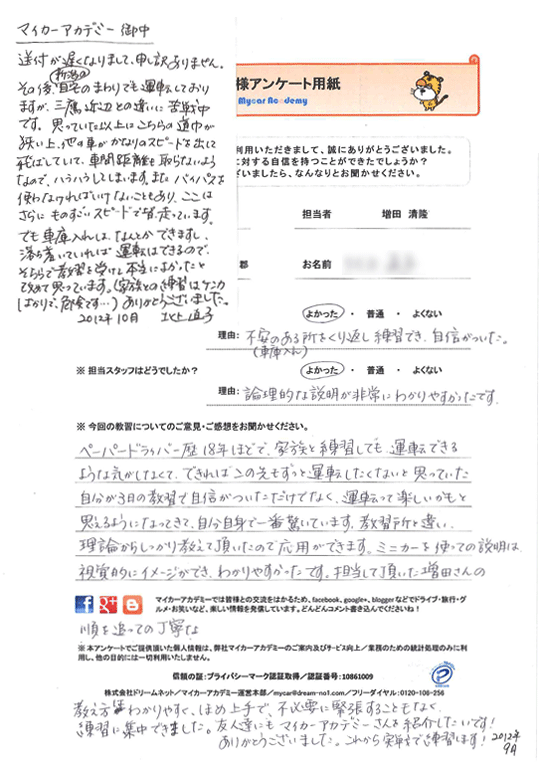 マイカーアカデミー 御中
送付が遅くなりまして、申し訳ありません。
その後、新潟の自宅のまわりでも運転しており
ますが、三鷹近辺との違いに苦戦中
です。思っていた以上にこちらの道中が
狭い上、他の車がかなりのスピードを出して
飛ばしていて、車間距離も取らないよう
なので、ハラハラしてしまいます。また バイパスを
使わなければいけないこともあり、ここは
さらに ものすごいスピードで皆、走っています。
でも 車庫入れは、なんとかできますし、
落ち着いていれば 運転はできるので、
そちらで教習を受けて本当によかったと
改めて思っています。(家族との練習はケンカ
ばかりで、危険です…) ありがとうございました。
2012年10月
様アンケート用紙
Mycar Academy
利用いただきまして、誠にありがとうございました。
に対する自信を持つことができたでしょうか?
ざいましたら、なんなりとお聞かせください。
担当者 増田 清隆
郡 お名前
よかった ・ 普通 ・ よくない
理由: 不安のある所をくり返し練習でき、自信がついた。
(車庫入れ)
※ 担当スタッフはどうでしたか? よかった ・ 普通 ・ よくない
理由: 論理的な説明が非常にわかりやすかったです。
※ 今回の教習についてのご意見・ご感想をお聞かせください。
ペーパードライバー歴18年ほどで、家族と練習しても、運転できる
ような気がしなくて、できればこの先もずっと運転したくないと思っていた
自分が3日の教習で自信がついただけでなく、運転って楽しいかもと
思えるようになってきて、自分自身で一番驚いています。教習所と違い、
理論からしっかり教えて頂いたので応用ができます。ミニカーを使っての説明は、
視覚的にイメージができ、わかりやすかったです。担当して頂いた増田さんの
マイカーアカデミーでは皆様との交流をはかるため、facebook、google+、blogger などでドライブ・旅行・グ
ルメ・お笑いなど、楽しい情報を発信しています。どんどんコメント書き込んでくださいね!
順を追っての丁寧な
※ 本アンケートでご提供頂いた個人情報は、弊社マイカーアカデミーのご案内及びサービス向上/業務のための統計処理のみに利
用し、他の目的には一切利用いたしません。
信頼の証:プライバシーマーク認証取得/認証番号:10861009
株式会社ドリームネット/マイカーアカデミー運営本部/mycar@dream-no1.com/フリーダイヤル:0120-106-256
教え方はわかりやすく、ほめ上手で、不必要に緊張することもなく、
練習に集中できました。友人達にも マイカーアカデミーさんを紹介したいです!
ありがとうございました。これから実車で練習します!
2012年
9月